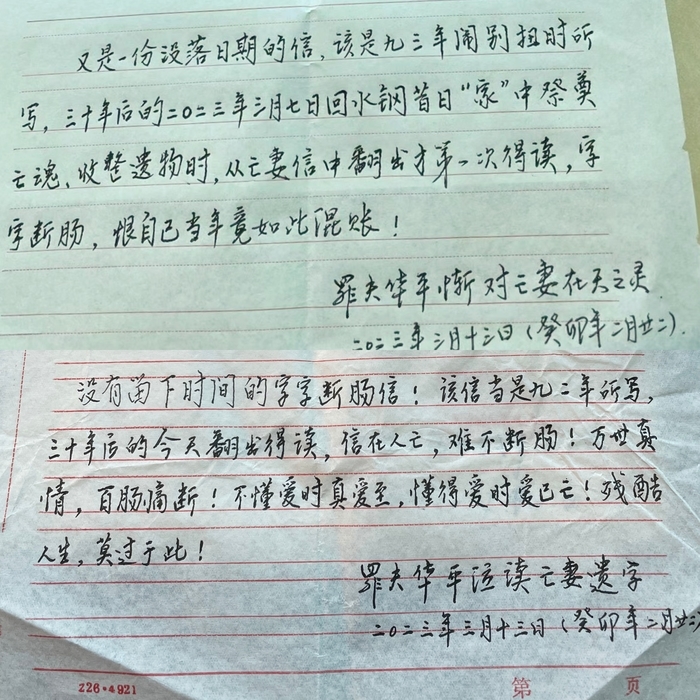 又是一份没落日期的信,该是九三年闹别扭时所
写,三十年后的二〇二三年三月七日回水钢昔日“家”中祭奠
亡魂、收整遗物时,从亡妻信中翻出才第一次得读,字
字断肠,恨自己当年竟如此混账!
罪夫华平惭对亡妻在天之灵
二〇二三年三月十三日(癸卯年二月廿二).
没有留下时间的字字断肠信!该信当是九二年所写,
三十年后的今天翻出得读,信在人亡,难不断肠!万世真
情,百肠痛断!不懂爱时真爱至,懂得爱时爱已亡!残酷
人生,莫过于此!
罪夫华平泣读亡妻遗字
二〇二三年三月十三日(癸卯年二月廿二)
226·4921 第 页